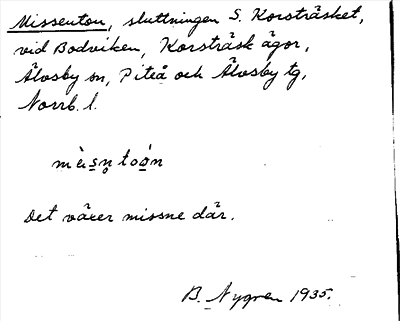 Missenton, sluttningen S. Korsträsket,
vid Bodviken, Korsträsk ägor,
Älvsby sn, Piteå och Älvsby tg,
Norrb. l.
Det växer missne där.
B. Nygren 1935.